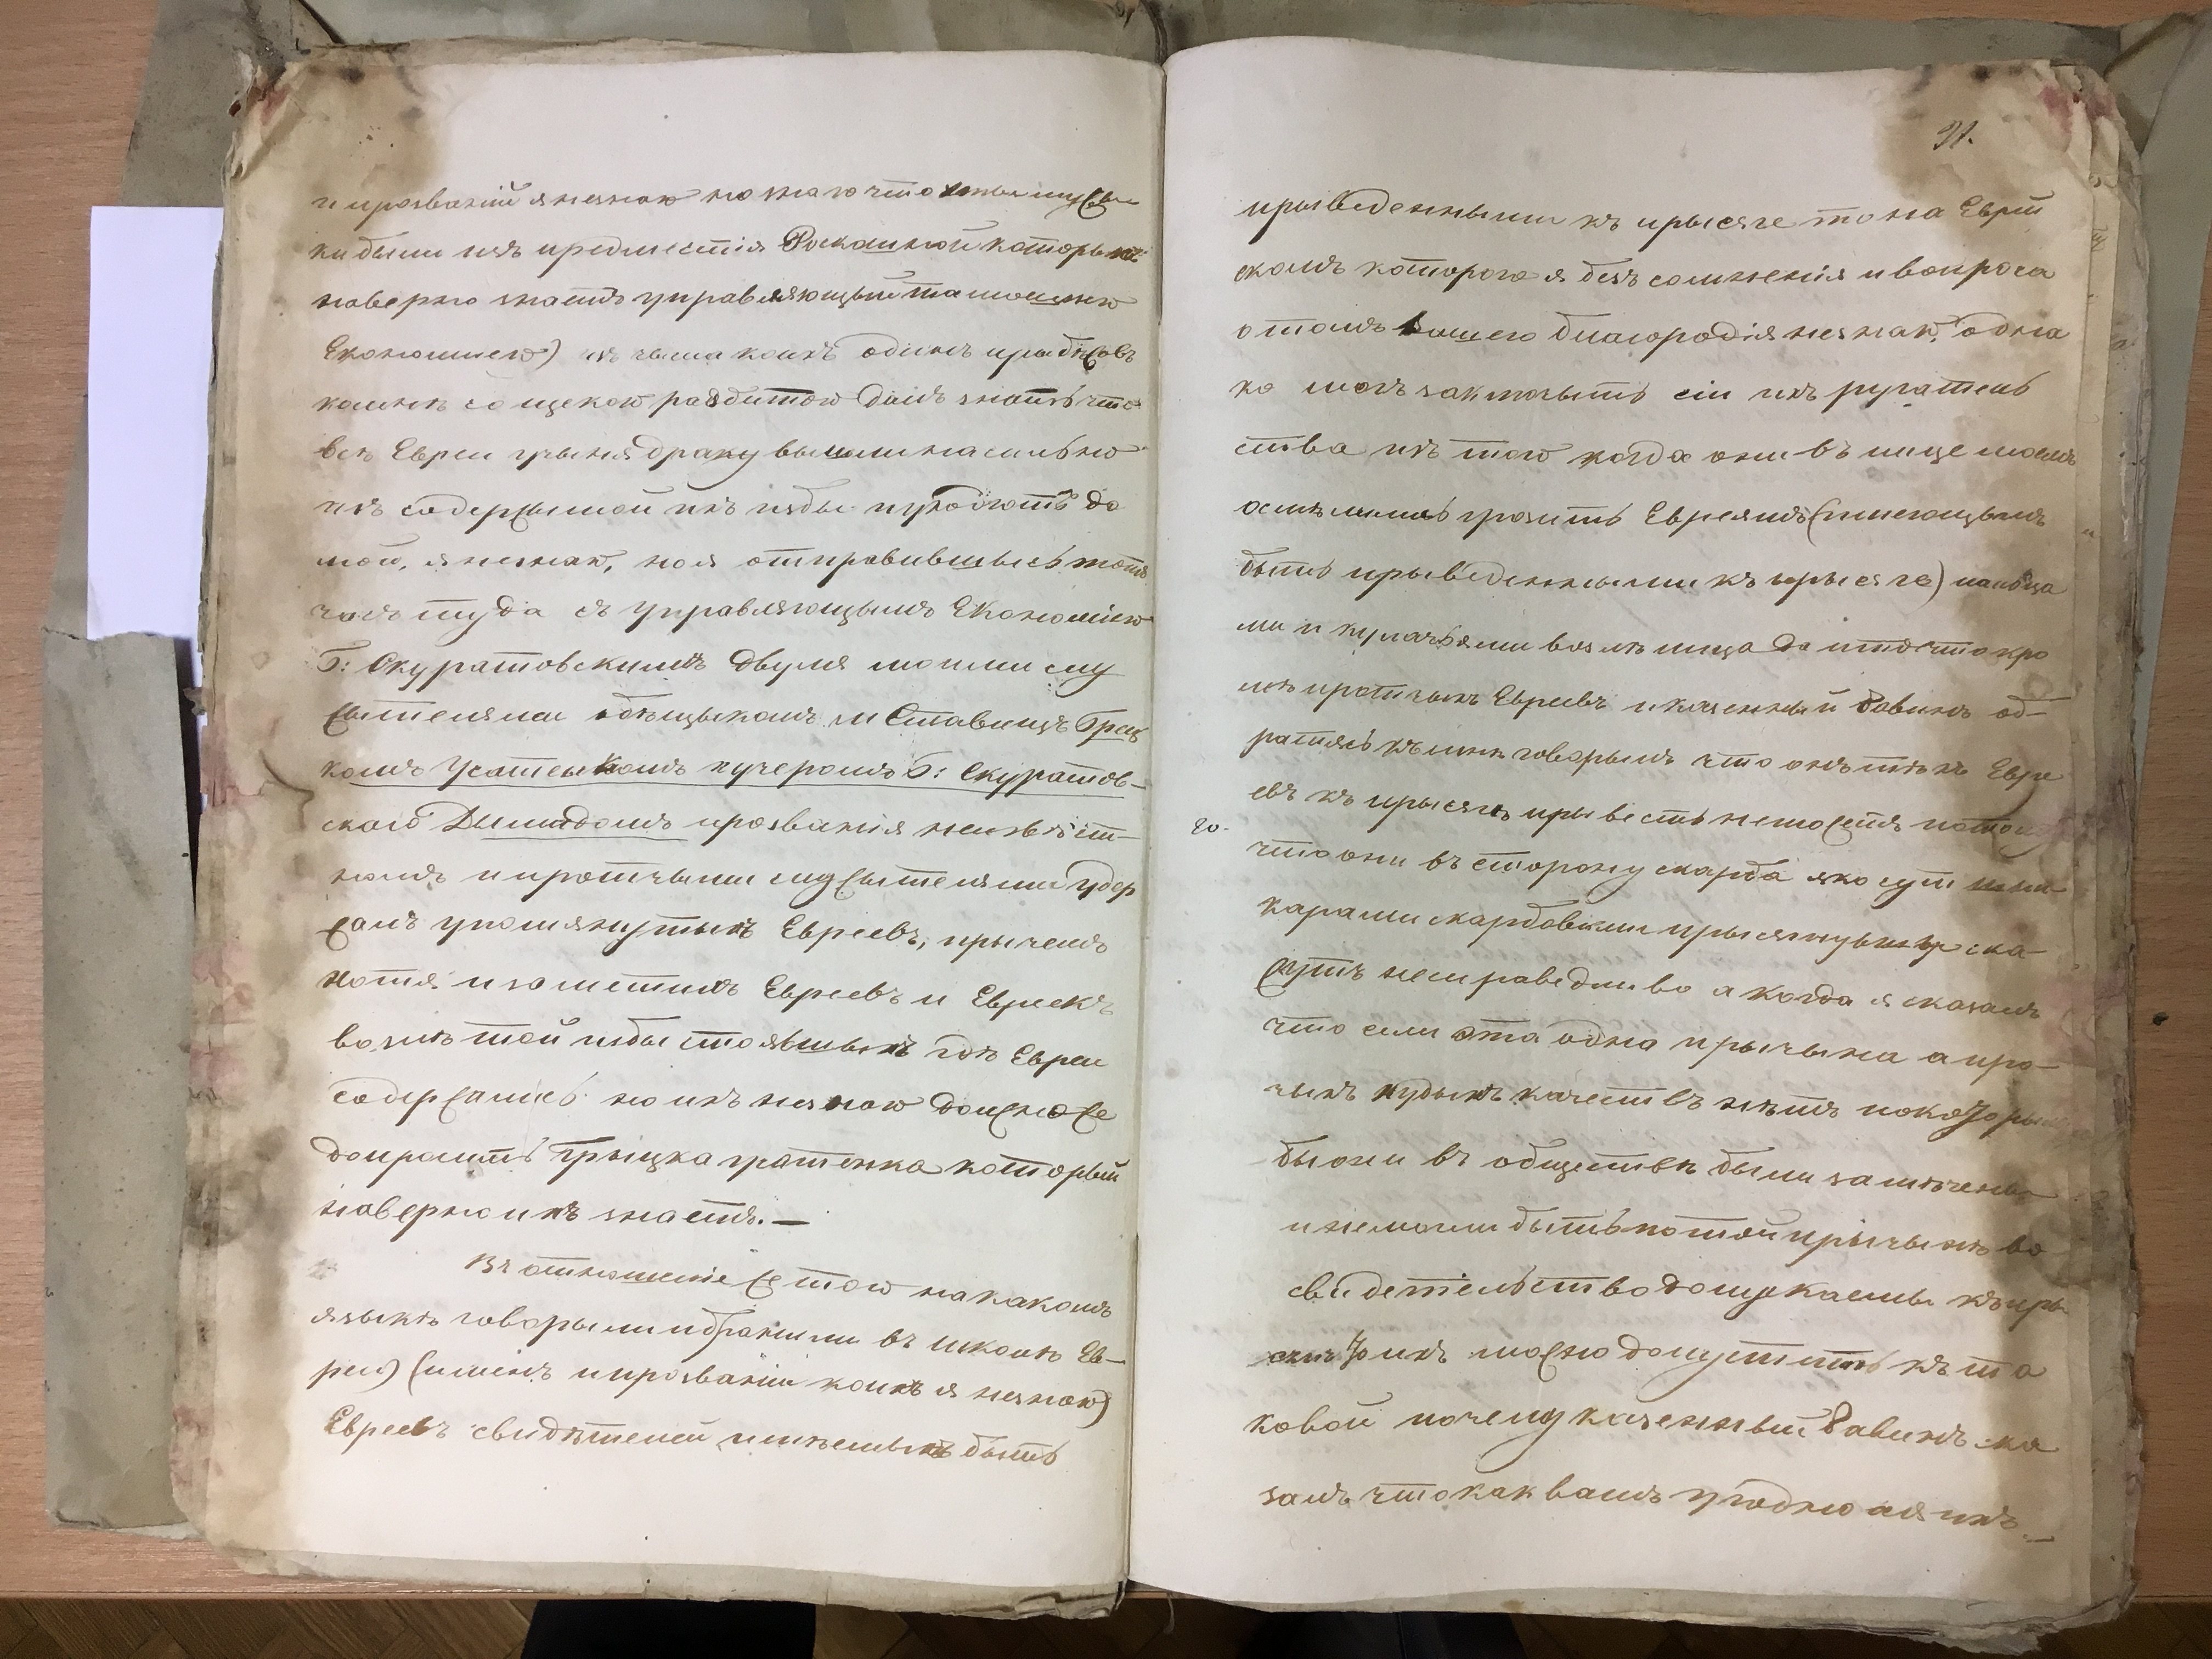 и прозваній я незнаю но знаю что мужы
ки были изъ предместія Роскошной которыхъ
наверно знаетъ управляющый тамошнею
Економіею) изъ числа коихъ одинъ прыбѣжавъ
комнѣ со щекою разбитою далъ знать что
всѣ Евреи учыня драку вышли насильно
изъ содержымой ихъ избы и уходютъ до
мой, я незнаю, но я отправившысь тотъ
часъ туда съ управляющымъ Економіею
Г: Скуратовскимъ двумя моими слу
жытелями обѣщыкомъ м Ставищъ Грец
комъ Усатенкомъ кучеромъ Г: Скуратов-
скаго Демидомъ прозванія неизвѣст-
нымъ и протчыми служытелями удер
жалъ упомянутыхъ Евреевъ, прычемъ
хотя и заметилъ Евреевъ и Евреекъ
возлѣ той избы стоявшыхъ где Евреи
содержались но ихъ незнаю должно же
допросить Грыцка Усатенка который
наверно ихъ знаетъ. —
Въ отношеніе же того на какомъ
языкѣ говорыли и бранили въ школѣ Ев-
реи (именъ и прозваніи коихъ я незнаю)
Евреевъ свидѣтелей имѣемыхъ быть
91.
прыведенными къ прысяге то на Еврей
скомъ которого я безъ сомненія и вопроса
отомъ вашего благородія незнаю, одна
ко могъ заключыть сіи ихъ ругатель
ства изъ того когда они въ лице моемъ
осмѣлились грозить Евреямъ (имеющымъ
быть прыведенными къ прысяге) пальца
ми и кулачьями возлѣ лица да и то что кро
мѣ протчыхъ Евреевъ и казенный Равинъ об-
ратясь къ мнѣ говорылъ что онъ тѣхъ Евре
евъ къ прысягѣ прывесть неможетъ потому
20.
что они въ сторону скарба яко сут шин
карами скарбовыми прысягнувшы ска-
жутъ несправедливо а когда я сказалъ
что если эта одна прычына а про-
чыхъ худыхъ качествъ нѣтъ по которымъ
бы они въ обществѣ были замѣчены
и немогли быть по той прычынѣ во
свидетельство допускаемы къ пры
сягѣ то ихъ можно допустить къ та
ковой почему казенный Равинъ ска
залъ что как вамъ угодно а я ихъ